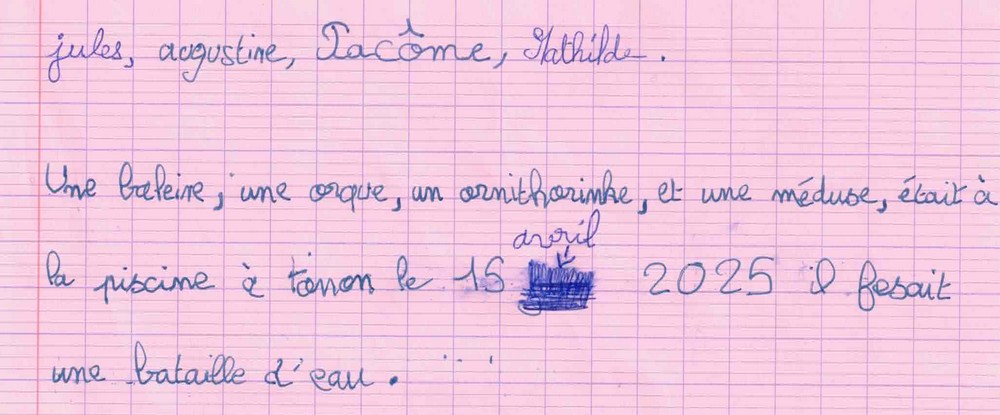 jules, augustine, Tacôme, Mathilde.
Une baleine, une orque, un ornithorinke, et une méduse, était à
avril
la piscine à tonon le 15 2025 il fesait
une bataille d'eau.